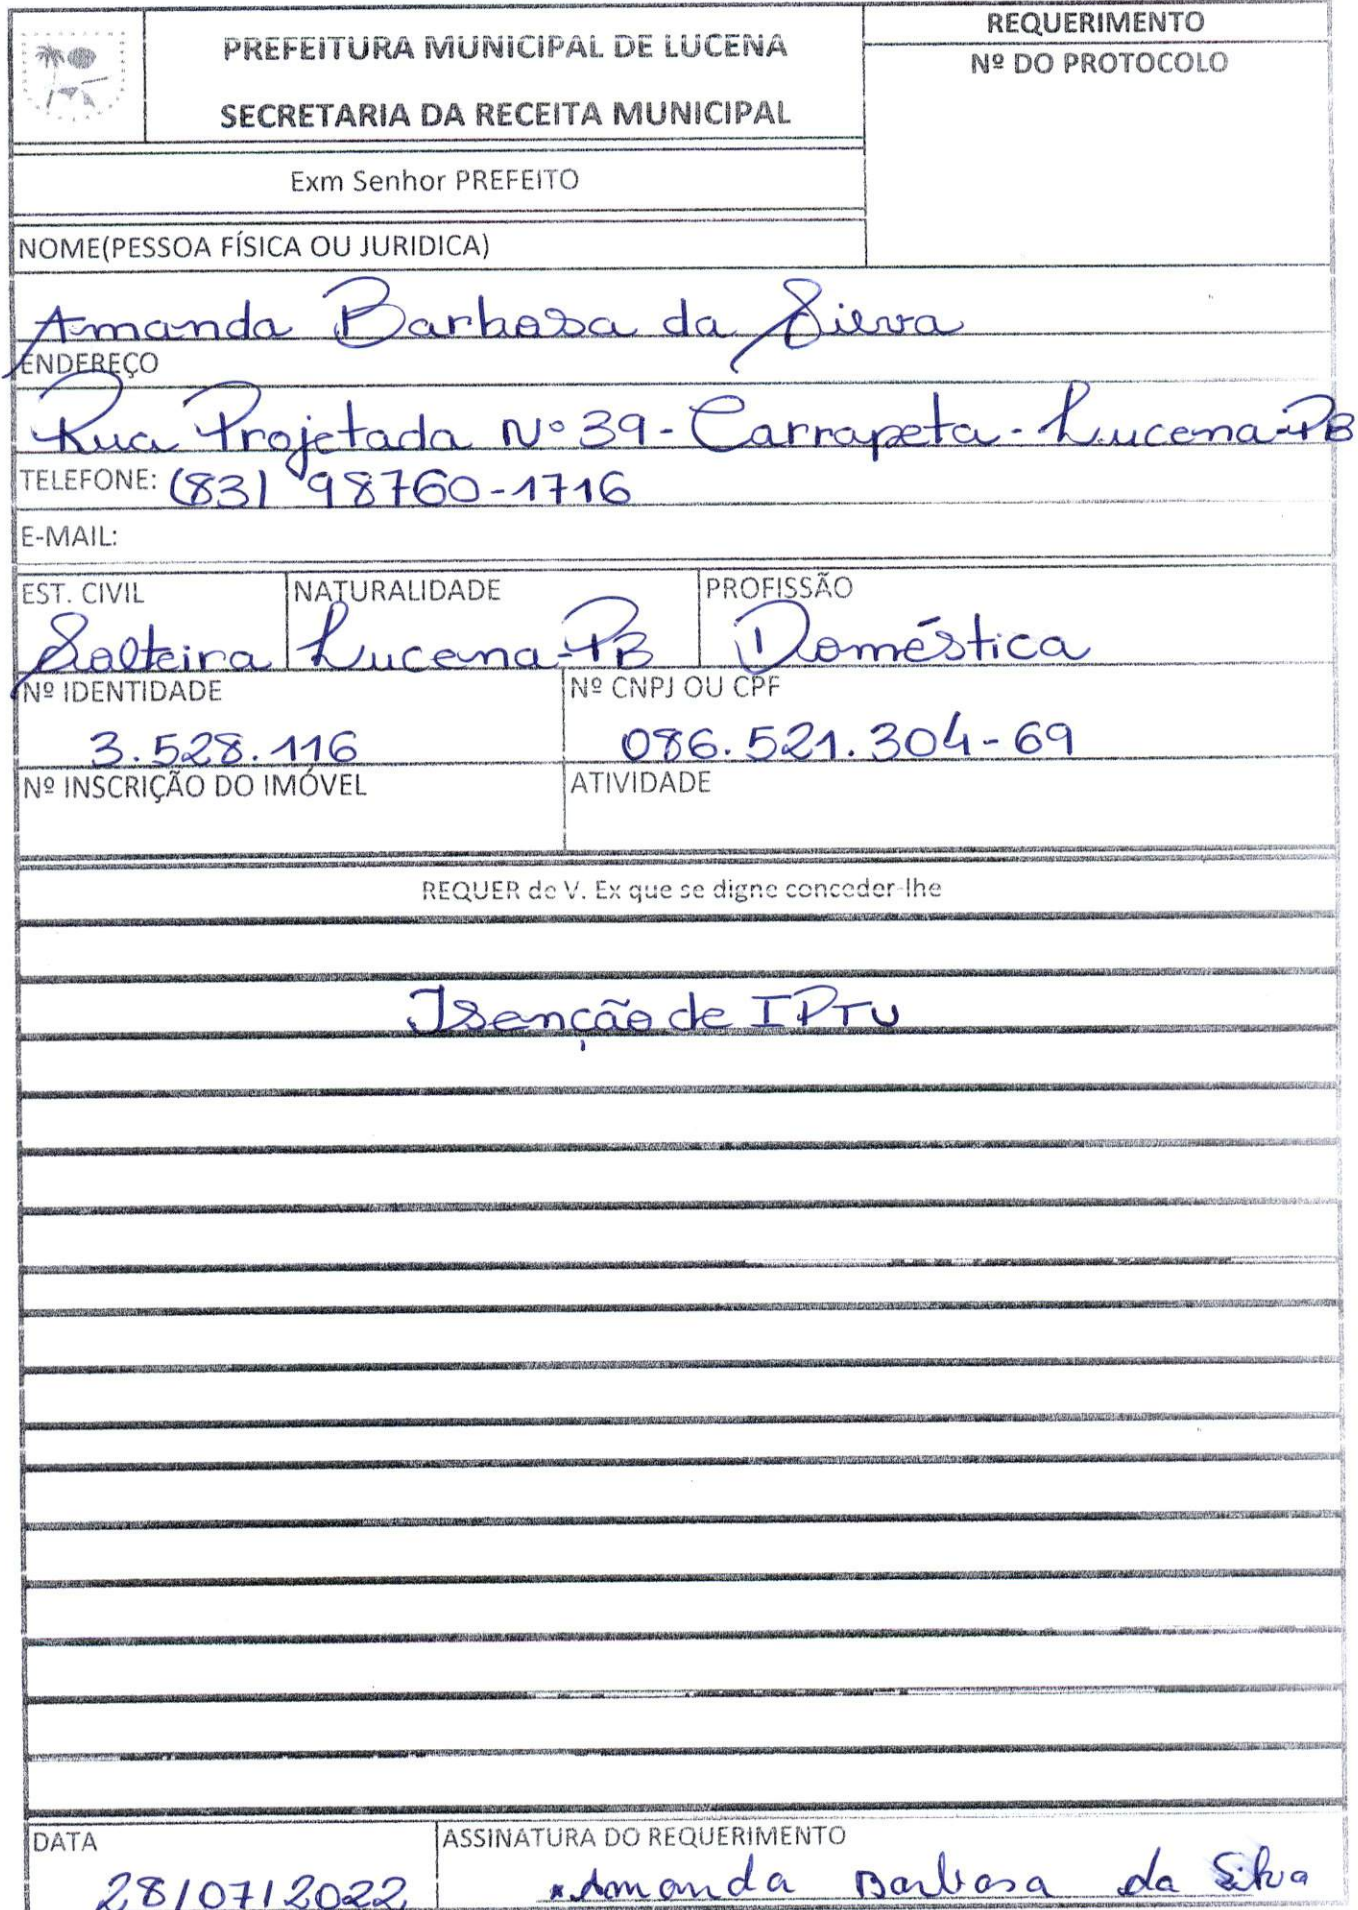 PREFEITURA MUNICIPAL DE LUCENA
SECRETARIA DA RECEITA MUNICIPAL
REQUERIMENTO
Nº DO PROTOCOLO
Exm Senhor PREFEITO
NOME(PESSOA FÍSICA OU JURIDICA)
Amanda Barbosa da Silva
ENDEREÇO
Rua Projetada Nº 39 - Carrapeta - Lucena-PB
TELEFONE: (83) 98760-1716
E-MAIL:
EST. CIVIL NATURALIDADE PROFISSÃO
Solteira Lucena-PB Doméstica
Nº IDENTIDADE Nº CNPJ OU CPF
3.528.116 086.521.304-69
Nº INSCRIÇÃO DO IMÓVEL ATIVIDADE
REQUER de V. Ex que se digne conceder-lhe
Isenção de IPTU
DATA ASSINATURA DO REQUERIMENTO
28/07/2022 x Amanda Barbosa da Silva